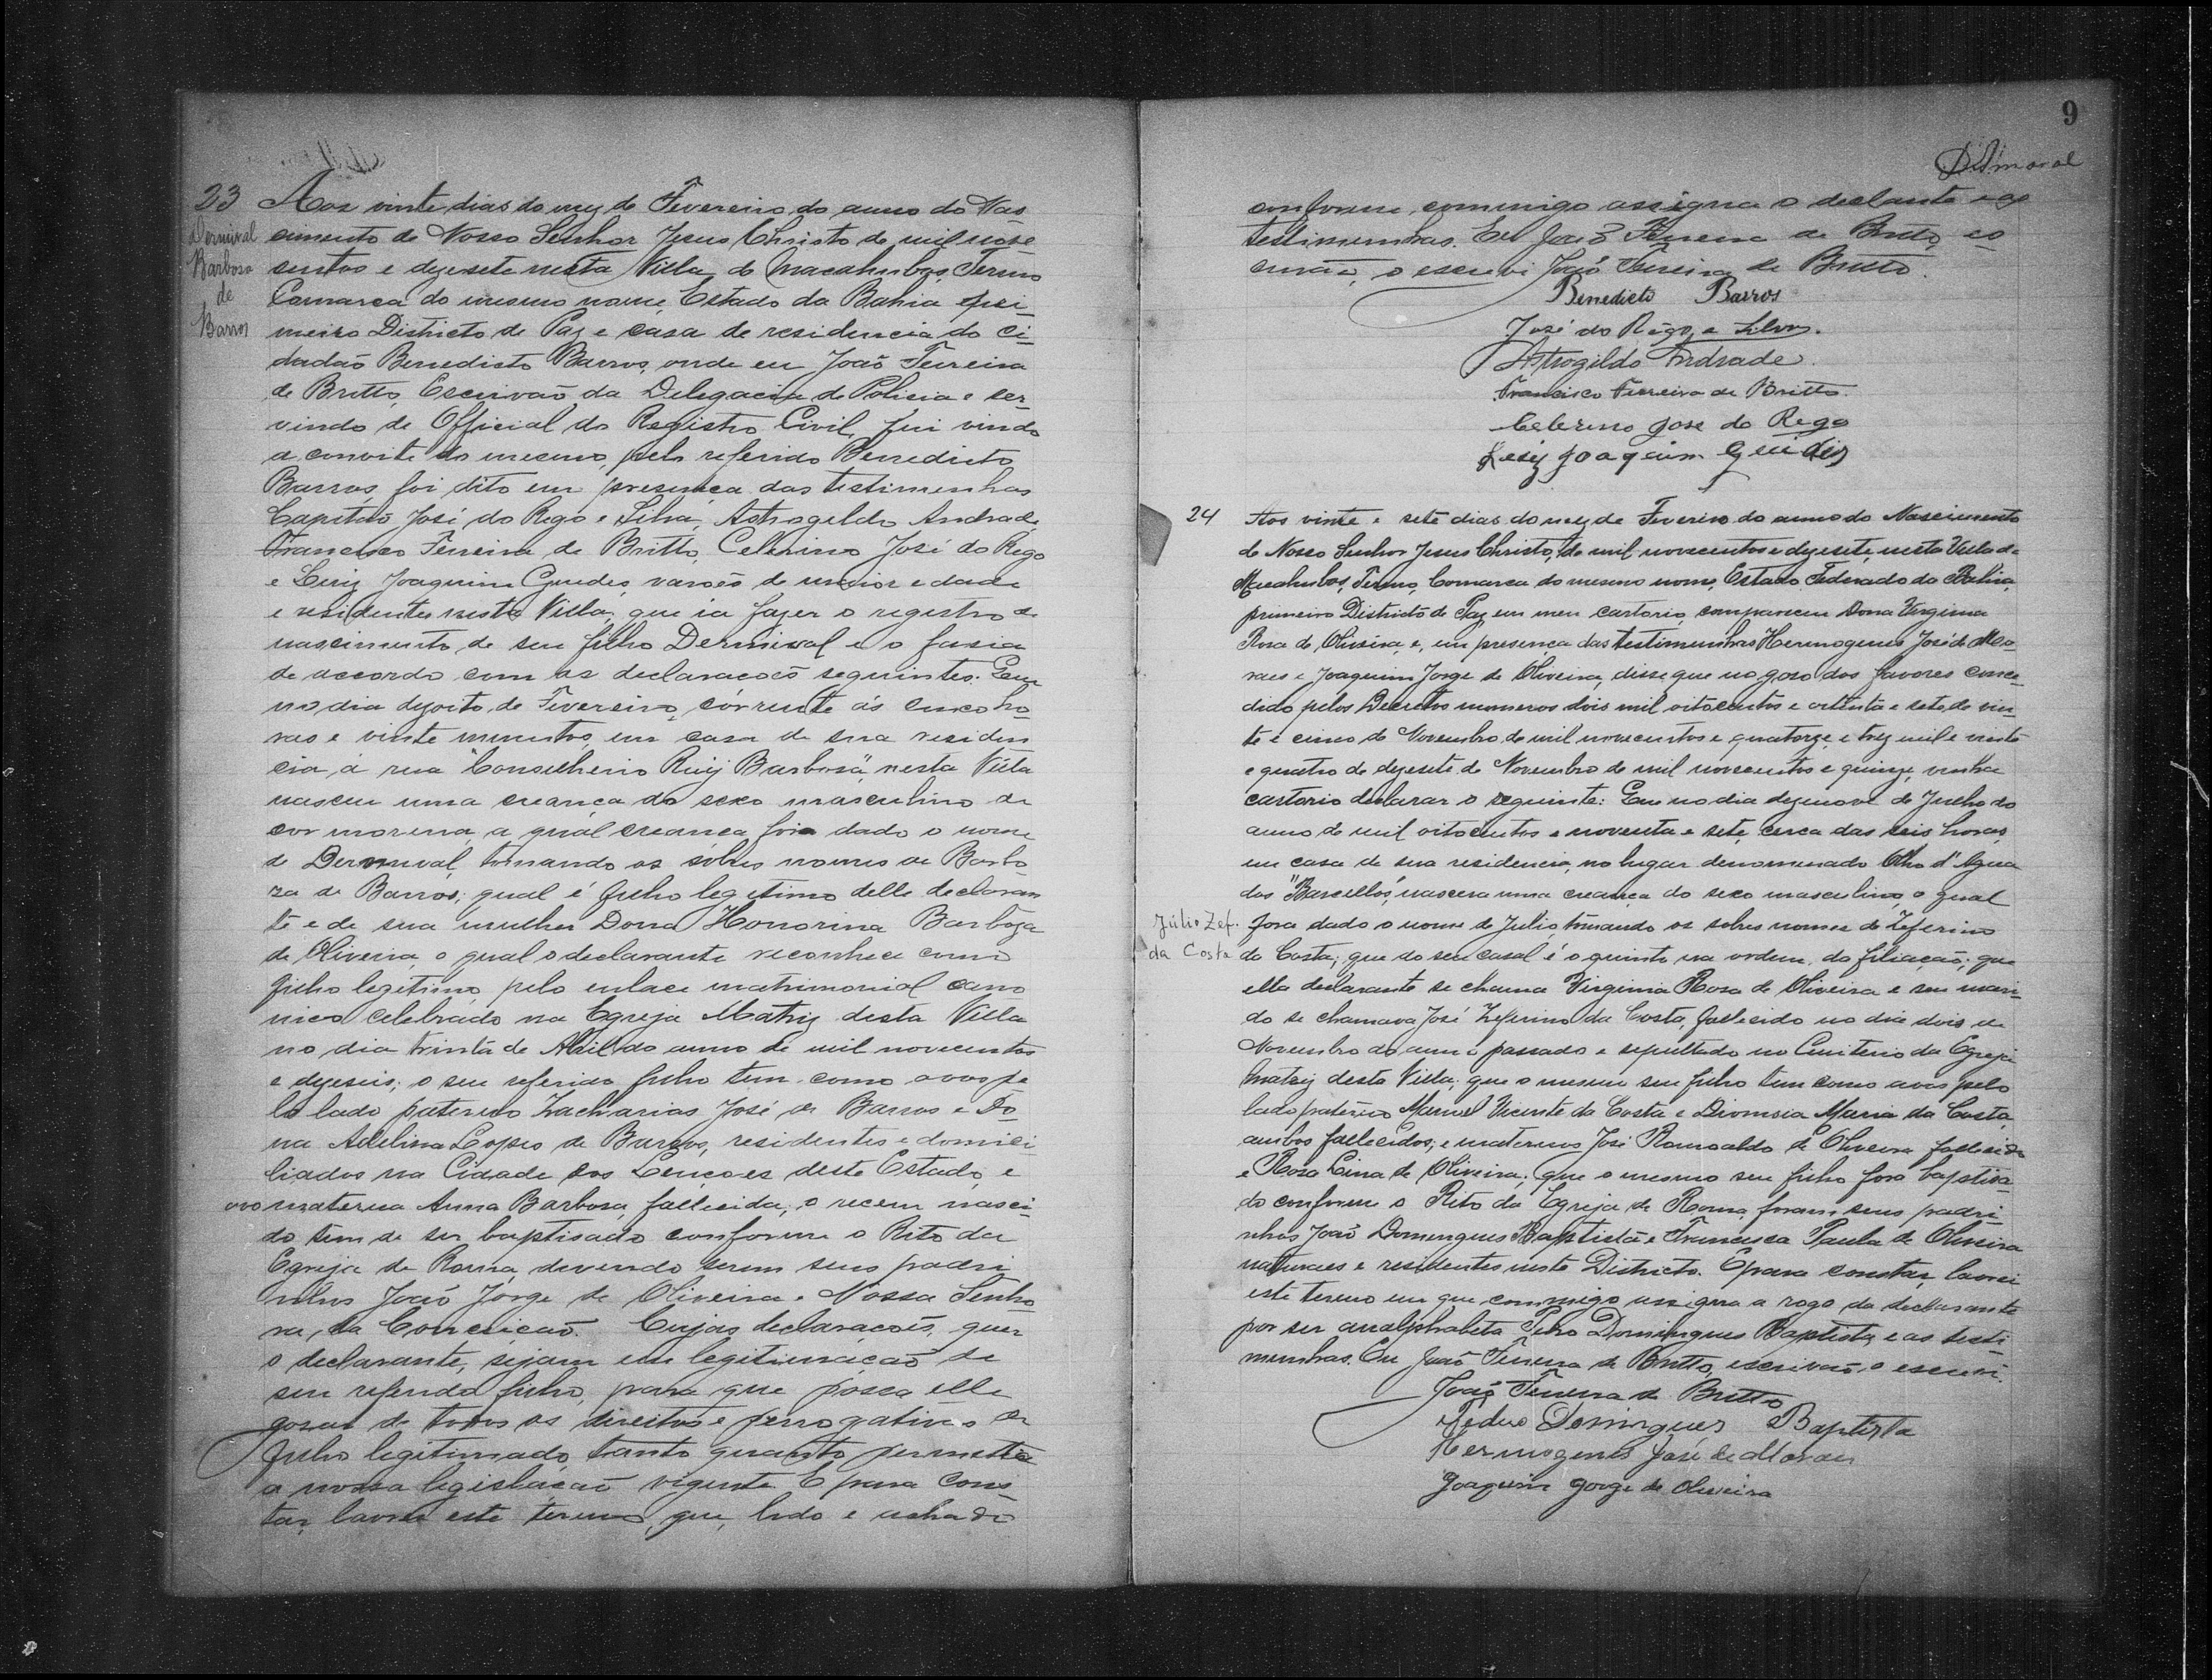 23 Aos vinte dias do mez de Fevereiro do anno do Nas
Dermival
Barbosa
de
Barros
cimento de Nosso Senhor Jesus Christo de mil nove
centos e dezesete nesta Villa de Macahubas, Termo
Comarca do mesmo nome, Estado da Bahia e pri-
meiro Districto de Paz e casa de residencia do ci-
dadão Benedicto Barros, onde eu João Ferreira
de Britto, Escrivão da Delegacia de Policia e ser-
vindo de Official do Registro Civil, fui vindo
a convite do mesmo, pelo referido Benedicto
Barros, foi dito em presença das testimunhas
Capitão José do Rego e Silva, Astrogildo Andrade
Francisco Ferreira de Britto, Celerino José do Rego
e Luiz Joaquim Guedes, varões de maior edade
e residentes nesta Villa, que ia fazer o registro de
nascimento de seu filho Dermival e o fasia
de accordo com as declarações seguintes: Que
no dia dezoito de Fevereiro, corrente ás cinco ho-
ras e vinte minutos, em casa de sua residen
cia, á rua "Conselheiro Ruy Barbosa", nesta Villa
nasceu uma creança do sexo masculino de
cor morena, a qual creança fôra dado o nome
de Dermival, tomando os sobres nomes de Barbo-
za de Barros; qual é filho legitimo delle declaran
te e de sua mulher Dona Honorina Barboza
de Oliveira, o qual o declarante reconhece como
filho legitimo, pelo enlace matrimonial cano
nico celebrado na Egreja Matriz desta Villa
no dia trinta de Abril do anno de mil novecentos
e dezeseis; o seu referido filho tem como avos pe
lo lado paterno Zacharias José de Barros e Do
na Adelina Lopes de Barros, residentes e domici
liados na Cidade dos Lençoes deste Estado, e
avo materna Anna Barbosa, fallecida; o recem nasci-
do tem de ser baptisado conforme o Rito da
Egreja de Roma, devendo serem seus padri
nhos João Jorge de Oliveira e Nossa Senho
ra, da Conceição. Cujas declarações, quer
o declarante, sejam em legitimação de
seu referido filho, para que possa elle
gosar de todos os direitos e perrogativas de
filho legitimado, tanto quanto permitta
a nossa legislação vigente. E para cons-
tar, lavrei este termo, que, lido e achado
9
D Amaral
conforme, commigo assigna o declante e as
testimunhas. Eu João Ferreira de Britto, es
crivão, o escrevi João Ferreira de Britto.
Benedicto Barros
José do Rego e Silva.
Astrogildo Andrade.
Francisco Ferreira de Britto.
Celerino Jose do Rego
Luiz Joaquim Guedes
24 Aos vinte e sete dias do mez de Fevereiro do anno do Nascimento
de Nosso Senhor Jesus Christo, de mil novecentos e dezesete, nesta Villa de
Macahubas, Termo, Comarca do mesmo nome, Estado Federado da Bahia,
primeiro Districto de Paz, em meu cartorio, compareceu Dona Virginia
Rosa de Oliveira, e, em presença das testimunhas Hermogenes José de Mo-
raes e Joaquim Jorge de Oliveira, disse que no goso dos favores conce-
dido pelos Decretos numeros dois mil oitocentos e oitenta e sete, de vin-
te e cinco de Novembro de mil novecentos e quatorze, e trez mil e vinte
e quatro de dezesete de Novembro de mil novecentos e quinze, vinha
cartorio declarar o seguinte: Que no dia dezenove de Julho do
anno de mil oitocentos e noventa e sete, cerca das seis horas,
em casa de sua residencia, no lugar denominado Olho d'Agua
dos "Barcellos", nascera uma creança do sexo masculino, o qual
Júlio Zef.
da Costa
fora dado o nome de Julio tomando os sobres nomes de Zeferino
da Costa; que do seu casal é o quinto na ordem da filiação; que
ella declarante se chama Virginia Rosa de Oliveira e seu mari-
do se chamava José Zeferino da Costa, fallecido no dia dois de
Novembro do anno passado e sepultado no Cemiterio da Egreja
Matriz desta Villa; que o mesmo seu filho tem como avos pelo
lado paterno Manoel Vicente da Costa e Dionisia Maria da Costa,
ambos fallecidos; e maternos José Romoaldo de Oliveira fallecido
e Rosa Lina de Oliveira; que o mesmo seu filho fora baptisa-
do conforme o Rito da Egreja de Roma, foram seus padri
nhos João Domingues Baptista e Francisca Paula de Oliveira
naturaes e residentes neste Districto. E para constar, lavrei
este termo em que, commigo assigna a rogo da declarante
por ser analphabeta Pedro Domingues Baptista, e as testi
munhas. Eu João Ferreira de Britto, escrivão, o escrevi.
João Ferreira de Britto
Pedro Domingues Baptista
Hermogenes José de Moraes
Joaquim Jorge de Oliveira